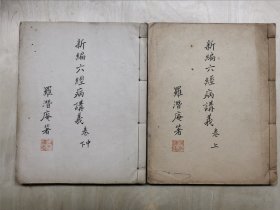 新編六經病講義 卷上
羅潛庵著
新編六經病講義 卷中下
羅潛庵著